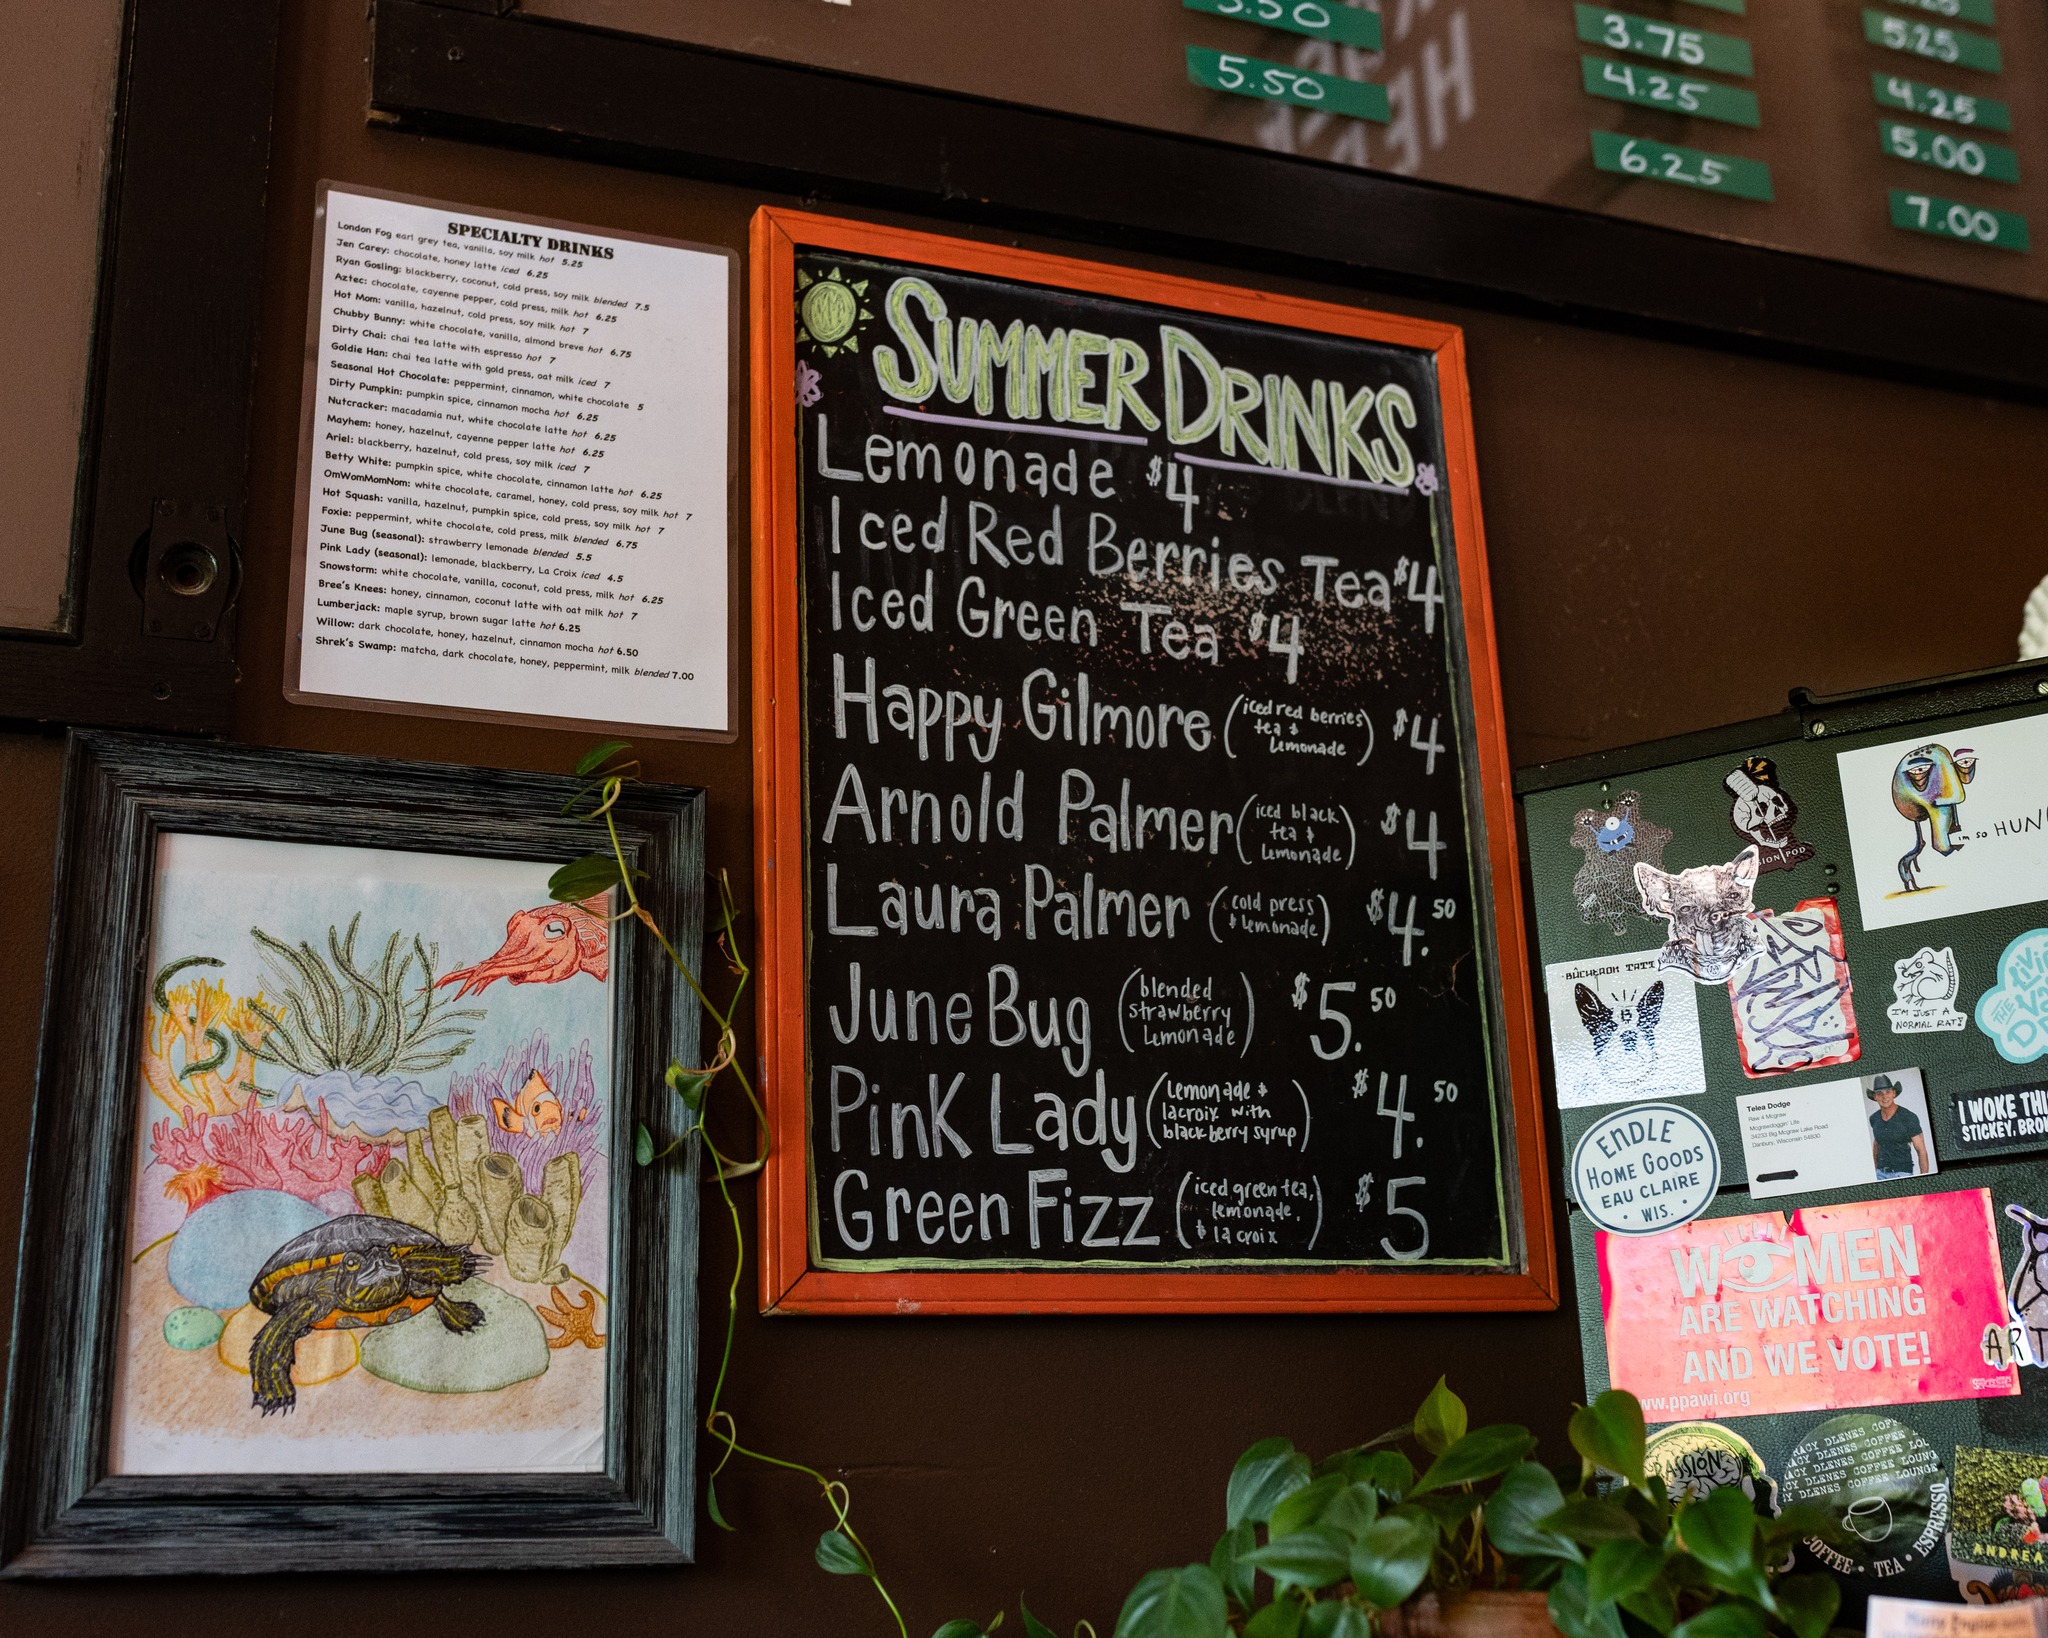 5.50
5.50
3.75
4.25
6.25
5.25
4.25
5.00
7.00
SPECIALTY DRINKS
London Fog earl grey tea, vanilla, soy milk hot 5.25
Jen Carey: chocolate, honey latte iced 6.25
Ryan Gosling: blackberry, coconut, cold press, soy milk blended 7.5
Aztec: chocolate, cayenne pepper, cold press, milk hot 6.25
Hot Mom: vanilla, hazelnut, cold press, soy milk hot 7
Chubby Bunny: white chocolate, vanilla, almond breve hot 6.75
Dirty Chai: chai tea latte with espresso hot 7
Goldie Han: chai tea latte with gold press, oat milk iced 7
Seasonal Hot Chocolate: peppermint, cinnamon, white chocolate 5
Dirty Pumpkin: pumpkin spice, cinnamon mocha hot 6.25
Nutcracker: macadamia nut, white chocolate latte hot 6.25
Mayhem: honey, hazelnut, cayenne pepper latte hot 6.25
Ariel: blackberry, hazelnut, cold press, soy milk iced 7
Betty White: pumpkin spice, white chocolate, cinnamon latte hot 6.25
OmWomMomNom: white chocolate, caramel, honey, cold press, soy milk hot 7
Hot Squash: vanilla, hazelnut, pumpkin spice, cold press, soy milk hot 7
Foxie: peppermint, white chocolate, cold press, milk blended 6.75
June Bug (seasonal): strawberry lemonade blended 5.5
Pink Lady (seasonal): lemonade, blackberry, La Croix iced 4.5
Snowstorm: white chocolate, vanilla, coconut, cold press, milk hot 6.25
Bree's Knees: honey, cinnamon, coconut latte with oat milk hot 7
Lumberjack: maple syrup, brown sugar latte hot 6.25
Willow: dark chocolate, honey, hazelnut, cinnamon mocha hot 6.50
Shrek's Swamp: matcha, dark chocolate, honey, peppermint, milk blended 7.00
SUMMER DRINKS
Lemonade $4
Iced Red Berries Tea $4
Iced Green Tea $4
Happy Gilmore (iced red berries tea & Lemonade) $4
Arnold Palmer (iced black tea & Lemonade) $4
Laura Palmer (cold press & lemonade) $4.50
June Bug (blended strawberry Lemonade) $5.50
Pink Lady (Lemonade & lacroix with blackberry syrup) $4.50
Green Fizz (iced green tea, lemonade, & la croix) $5
SION POD
im so HUN
BÜCHERON TATT
I'M JUST A
NORMAL RAT!
THE
Telea Dodge
Raw 4 Mcgraw
Mcgrawdoggin' Life
34233 Big Mcgraw Lake Road
Danbury, Wisconsin 54830
I WOKE THI
STICKEY, BROW
ENDLE
HOME GOODS
EAU CLAIRE
WIS.
WOMEN
ARE WATCHING
AND WE VOTE!
www.ppawi.org
ART
PASSION
RACY DLENES COFFEE L
ACY DLENES COFFEE LOU
CY DLENES COFFEE LOUNG
Y DLENES COFFEE LOUNGE
COFFEE • TEA • ESPRESSO
ANDREA